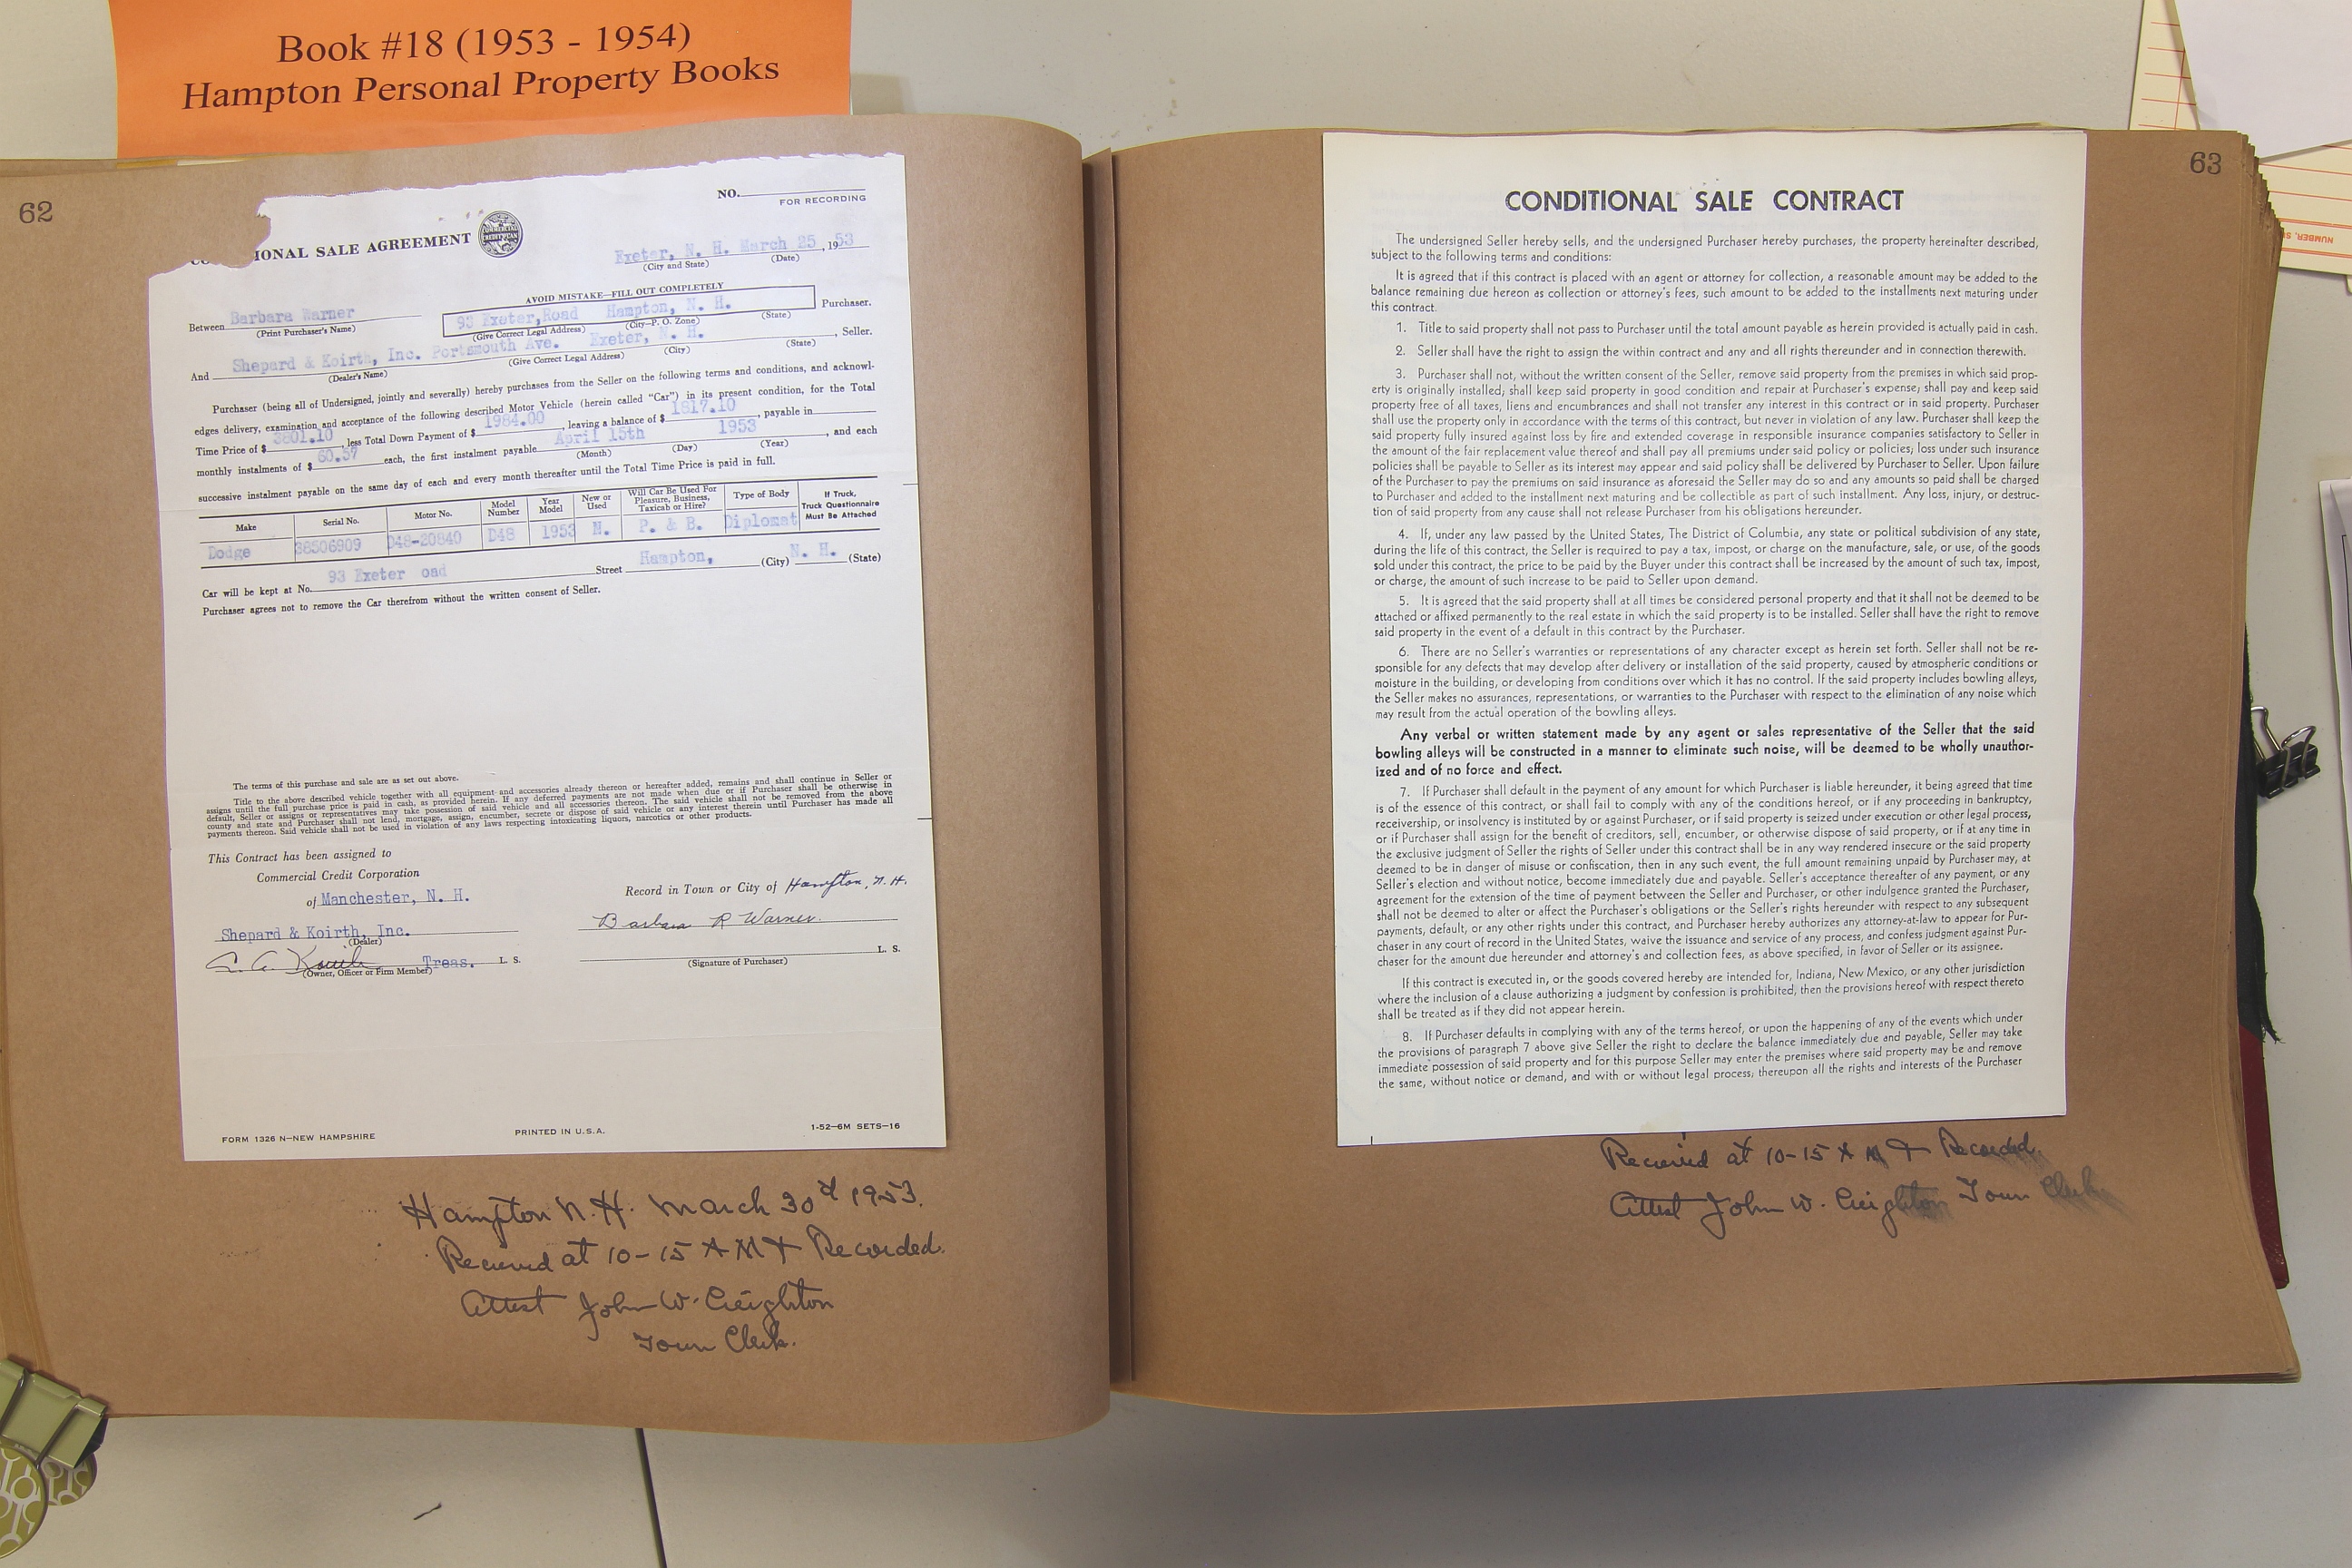 Book #18 (1953 - 1954)
Hampton Personal Property Books
62
NO.
FOR RECORDING
IONAL SALE AGREEMENT
Exeter, N. H. March 25, 1953
(City and State) (Date)
AVOID MISTAKE—FILL OUT COMPLETELY
Between Barbara Warner 93 Exeter,Road Hampton, N. H. Purchaser.
(Print Purchaser's Name) (Give Correct Legal Address) (City—P. O. Zone) (State)
And Shepard & Koirth, Inc. Portsmouth Ave. Exeter, N. H. , Seller.
(Dealer's Name) (Give Correct Legal Address) (City) (State)
Purchaser (being all of Undersigned, jointly and severally) hereby purchases from the Seller on the following terms and conditions, and acknowl-
edges delivery, examination and acceptance of the following described Motor Vehicle (herein called "Car") in its present condition, for the Total
Time Price of $ 3801.10 , less Total Down Payment of $ 1984.00 , leaving a balance of $ 1817.10 , payable in
monthly instalments of $ 60.57 each, the first instalment payable April 15th 1953 , and each
(Month) (Day) (Year)
successive instalment payable on the same day of each and every month thereafter until the Total Time Price is paid in full.
Make Serial No. Motor No. Model Number Year Model New or Used Will Car Be Used For Pleasure, Business, Taxicab or Hire? Type of Body If Truck, Truck Questionnaire Must Be Attached
Dodge 38506909 D48-20840 D48 1953 N. P. & B. Diplomat
Car will be kept at No. 93 Exeter oad Street Hampton, (City) N. H. (State)
Purchaser agrees not to remove the Car therefrom without the written consent of Seller.
The terms of this purchase and sale are as set out above.
Title to the above described vehicle together with all equipment and accessories already thereon or hereafter added, remains and shall continue in Seller or
assigns until the full purchase price is paid in cash, as provided herein. If any deferred payments are not made when due or if Purchaser shall be otherwise in
default, Seller or assigns or representatives may take possession of said vehicle and all accessories thereon. The said vehicle shall not be removed from the above
county and state and Purchaser shall not lend, mortgage, assign, encumber, secrete or dispose of said vehicle or any interest therein until Purchaser has made all
payments thereon. Said vehicle shall not be used in violation of any laws respecting intoxicating liquors, narcotics or other products.
This Contract has been assigned to
Commercial Credit Corporation
of Manchester, N. H.
Record in Town or City of Hampton, N. H.
Barbara R Warner
Shepard & Koirth, Inc.
(Dealer)
Treas. L. S.
(Owner, Officer or Firm Member)
L. S.
(Signature of Purchaser)
FORM 1326 N—NEW HAMPSHIRE PRINTED IN U.S.A. 1-52—6M SETS—16
Hampton N.H. March 30th 1953.
Recieved at 10-15 A M & Recorded.
Attest John W. Creighton
Town Clerk.
63
CONDITIONAL SALE CONTRACT
The undersigned Seller hereby sells, and the undersigned Purchaser hereby purchases, the property hereinafter described,
subject to the following terms and conditions:
It is agreed that if this contract is placed with an agent or attorney for collection, a reasonable amount may be added to the
balance remaining due hereon as collection or attorney's fees, such amount to be added to the installments next maturing under
this contract.
1. Title to said property shall not pass to Purchaser until the total amount payable as herein provided is actually paid in cash.
2. Seller shall have the right to assign the within contract and any and all rights thereunder and in connection therewith.
3. Purchaser shall not, without the written consent of the Seller, remove said property from the premises in which said prop-
erty is originally installed; shall keep said property in good condition and repair at Purchaser's expense; shall pay and keep said
property free of all taxes, liens and encumbrances and shall not transfer any interest in this contract or in said property. Purchaser
shall use the property only in accordance with the terms of this contract, but never in violation of any law. Purchaser shall keep the
said property fully insured against loss by fire and extended coverage in responsible insurance companies satisfactory to Seller in
the amount of the fair replacement value thereof and shall pay all premiums under said policy or policies; loss under such insurance
policies shall be payable to Seller as its interest may appear and said policy shall be delivered by Purchaser to Seller. Upon failure
of the Purchaser to pay the premiums on said insurance as aforesaid the Seller may do so and any amounts so paid shall be charged
to Purchaser and added to the installment next maturing and be collectible as part of such installment. Any loss, injury, or destruc-
tion of said property from any cause shall not release Purchaser from his obligations hereunder.
4. If, under any law passed by the United States, The District of Columbia, any state or political subdivision of any state,
during the life of this contract, the Seller is required to pay a tax, impost, or charge on the manufacture, sale, or use, of the goods
sold under this contract, the price to be paid by the Buyer under this contract shall be increased by the amount of such tax, impost,
or charge, the amount of such increase to be paid to Seller upon demand.
5. It is agreed that the said property shall at all times be considered personal property and that it shall not be deemed to be
attached or affixed permanently to the real estate in which the said property is to be installed. Seller shall have the right to remove
said property in the event of a default in this contract by the Purchaser.
6. There are no Seller's warranties or representations of any character except as herein set forth. Seller shall not be re-
sponsible for any defects that may develop after delivery or installation of the said property, caused by atmospheric conditions or
moisture in the building, or developing from conditions over which it has no control. If the said property includes bowling alleys,
the Seller makes no assurances, representations, or warranties to the Purchaser with respect to the elimination of any noise which
may result from the actual operation of the bowling alleys.
Any verbal or written statement made by any agent or sales representative of the Seller that the said
bowling alleys will be constructed in a manner to eliminate such noise, will be deemed to be wholly unauthor-
ized and of no force and effect.
7. If Purchaser shall default in the payment of any amount for which Purchaser is liable hereunder, it being agreed that time
is of the essence of this contract, or shall fail to comply with any of the conditions hereof, or if any proceeding in bankruptcy,
receivership, or insolvency is instituted by or against Purchaser, or if said property is seized under execution or other legal process,
or if Purchaser shall assign for the benefit of creditors, sell, encumber, or otherwise dispose of said property, or if at any time in
the exclusive judgment of Seller the rights of Seller under this contract shall be in any way rendered insecure or the said property
deemed to be in danger of misuse or confiscation, then in any such event, the full amount remaining unpaid by Purchaser may, at
Seller's election and without notice, become immediately due and payable. Seller's acceptance thereafter of any payment, or any
agreement for the extension of the time of payment between the Seller and Purchaser, or other indulgence granted the Purchaser,
shall not be deemed to alter or affect the Purchaser's obligations or the Seller's rights hereunder with respect to any subsequent
payments, default, or any other rights under this contract, and Purchaser hereby authorizes any attorney-at-law to appear for Pur-
chaser in any court of record in the United States, waive the issuance and service of any process, and confess judgment against Pur-
chaser for the amount due hereunder and attorney's and collection fees, as above specified, in favor of Seller or its assignee.
If this contract is executed in, or the goods covered hereby are intended for, Indiana, New Mexico, or any other jurisdiction
where the inclusion of a clause authorizing a judgment by confession is prohibited, then the provisions hereof with respect thereto
shall be treated as if they did not appear herein.
8. If Purchaser defaults in complying with any of the terms hereof, or upon the happening of any of the events which under
the provisions of paragraph 7 above give Seller the right to declare the balance immediately due and payable, Seller may take
immediate possession of said property and for this purpose Seller may enter the premises where said property may be and remove
the same, without notice or demand, and with or without legal process; thereupon all the rights and interests of the Purchaser
Recieved at 10-15 A M & Recorded.
Attest John W. Creighton Town Clerk
NUMBER, S